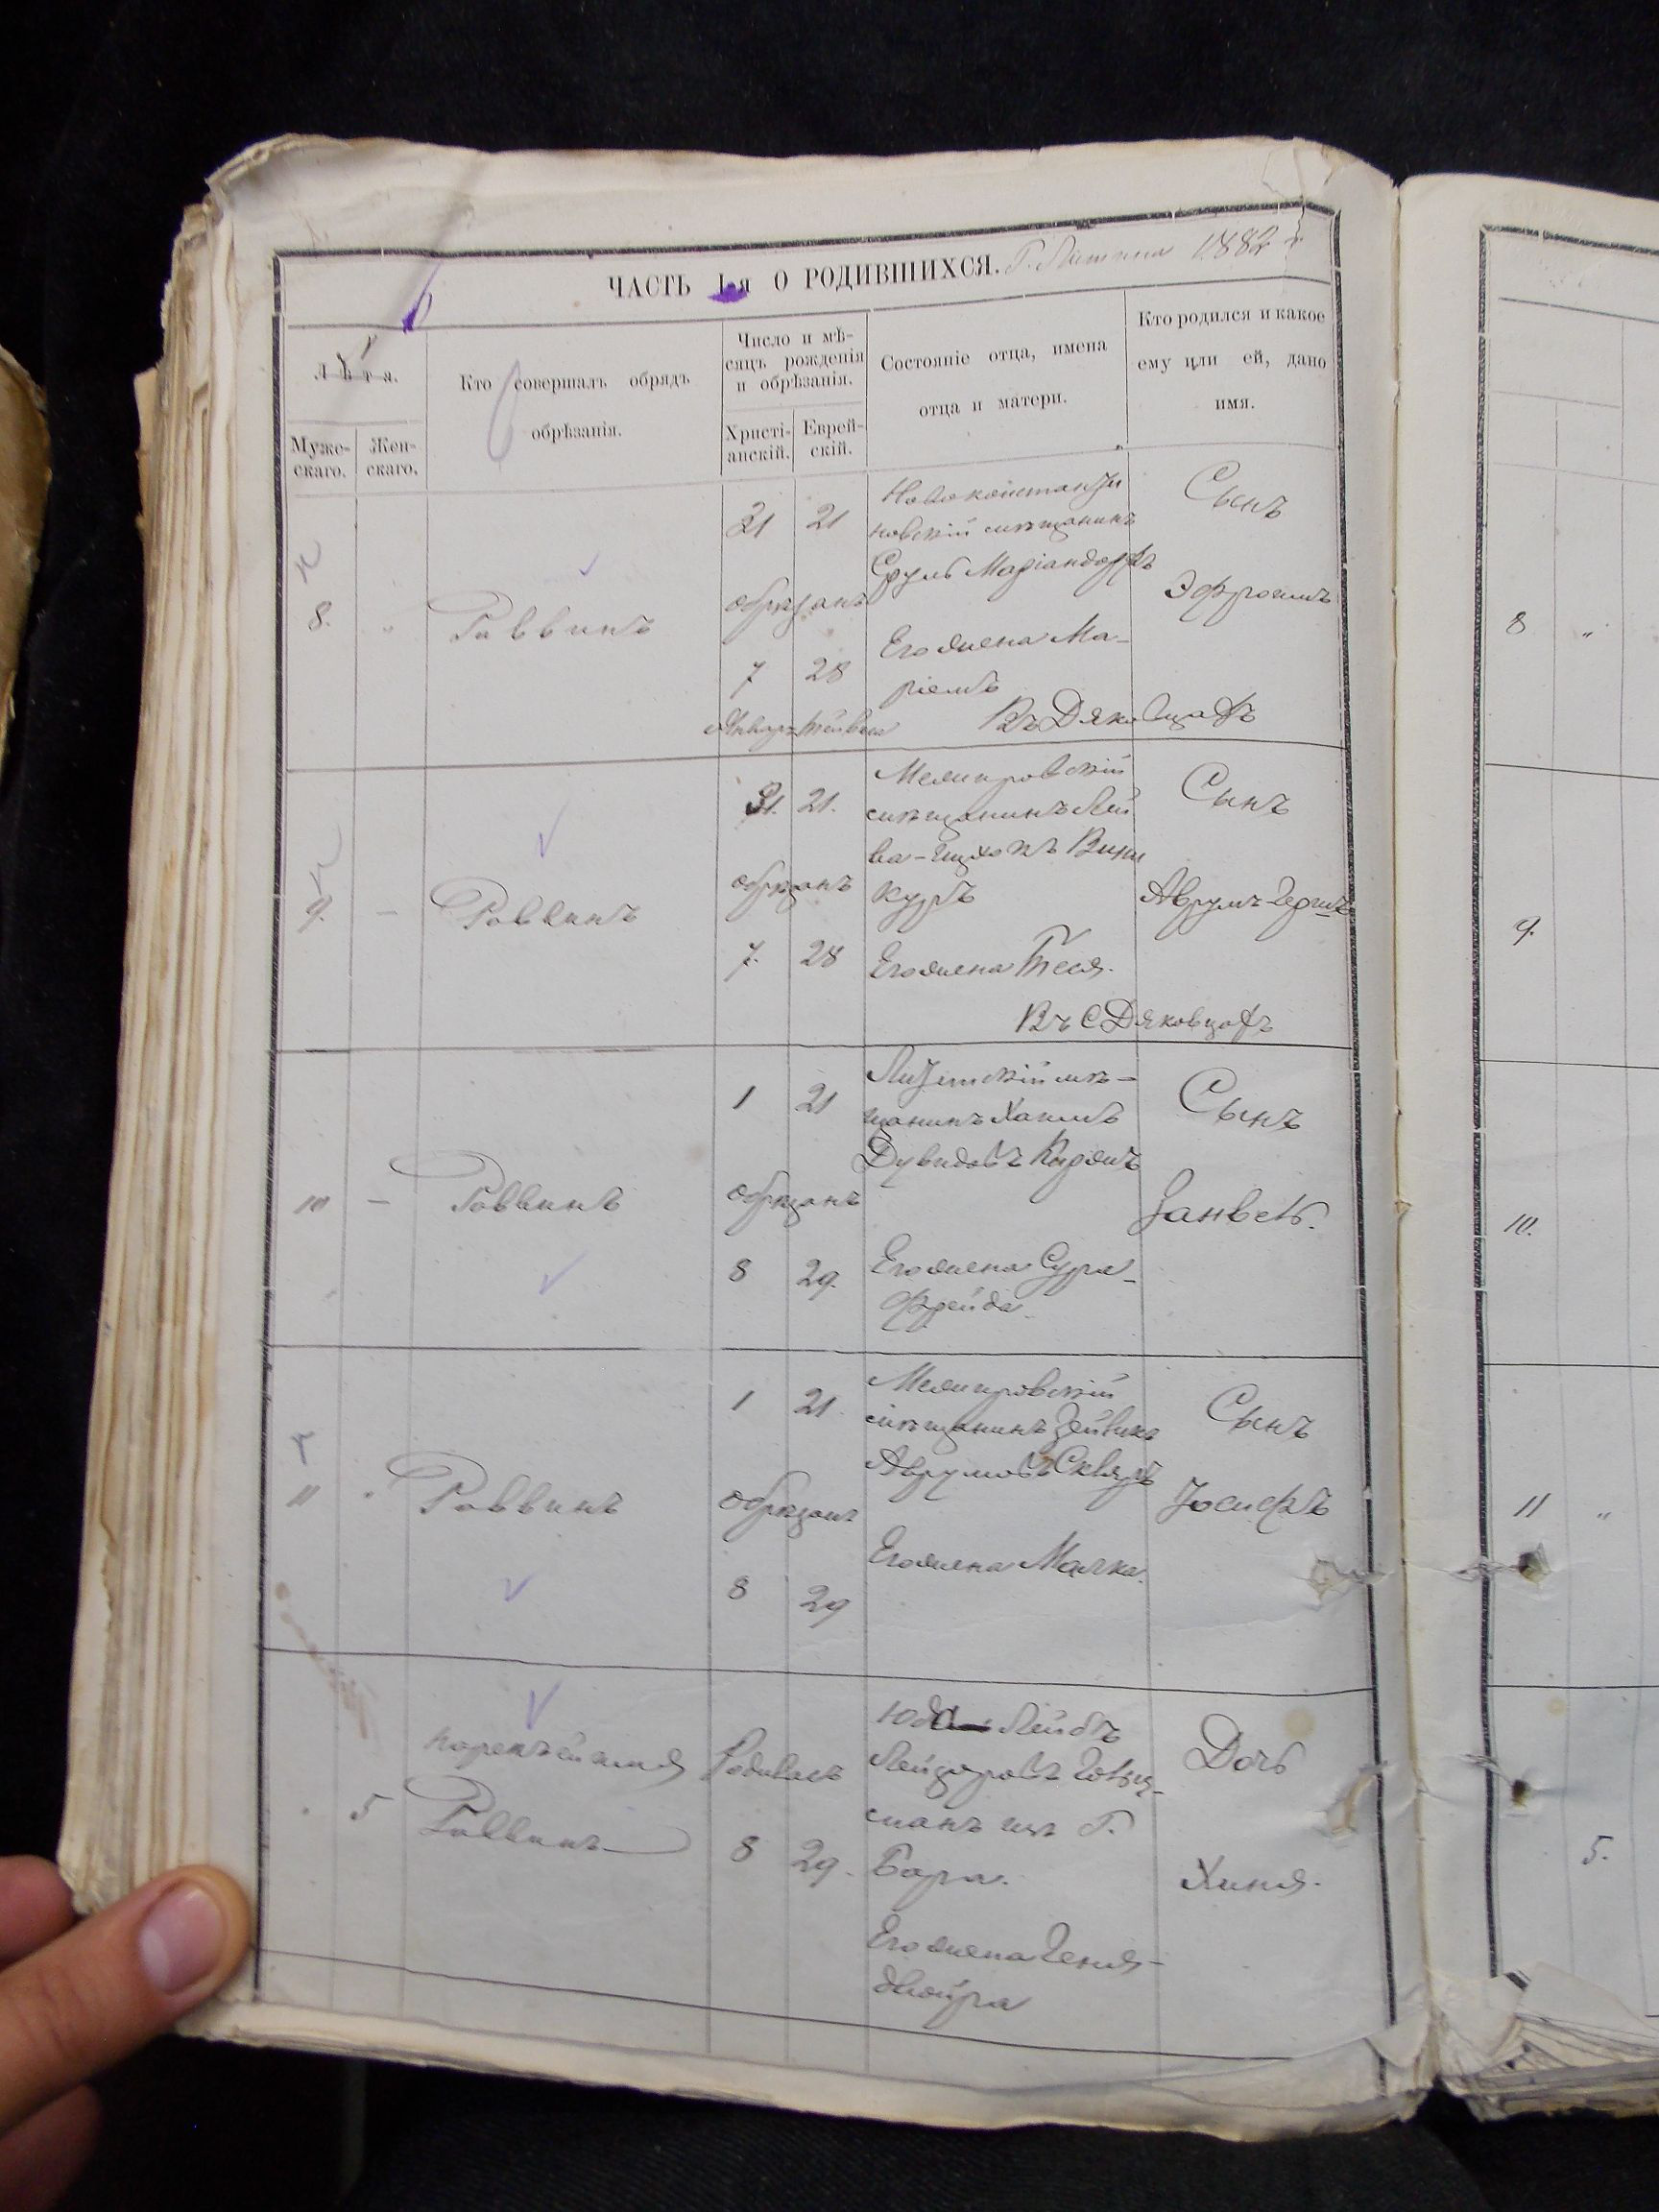 ЧАСТЬ I-я О РОДИВШИХСЯ. Г. Литина 1882 г
Лѣта.
Муже-
скаго.
Жен-
скаго.
Кто совершалъ обрядъ
обрѣзанія.
Число и мѣ-
сяцъ рожденія
и обрѣзанія.
Христі-
анскій.
Еврей-
скій.
Состояніе отца, имена
отца и матери.
Кто родился и какое
ему или ей, дано
имя.
8. " Раввинъ
31 21
обрѣзанъ
7 28
Январь Тейвеса
Новоконстанти
новскій мѣщанинъ
Сруль Маріандорфъ
Его жена Ма-
ріемъ
Въ Дяковцахъ
Сынъ
Эфроимъ
9. - Раввинъ
31. 21.
обрѣзанъ
7. 28
Межировскій
мѣщанинъ Лей
ба-Ицхокъ Вини
куръ
Его жена Тося.
Въ С Дяковцахъ
Сынъ
Аврумъ-Герш
10 - Раввинъ
1 21
обрѣзанъ
8 29.
Литинскій мѣ-
щанинъ Хаимъ
Дувидовъ
Его жена Сура-
Фрейда
Сынъ
Занвель.
11 " Раввинъ
1 21.
обрѣзанъ
8 29
Межировскій
мѣщанинъ Зейвикъ
Аврумовъ Скляръ
Его жена Малка.
Сынъ
Іосифъ
" 5
нарекъ имя
Раввинъ
Родилась
8 29.
Юда Лейбъ
Лейзоровъ
манъ изъ Г.
Бара.
Его жена Геня-
Двойра
Дочь
Хиня.
8 "
9.
10.
11 "
5.